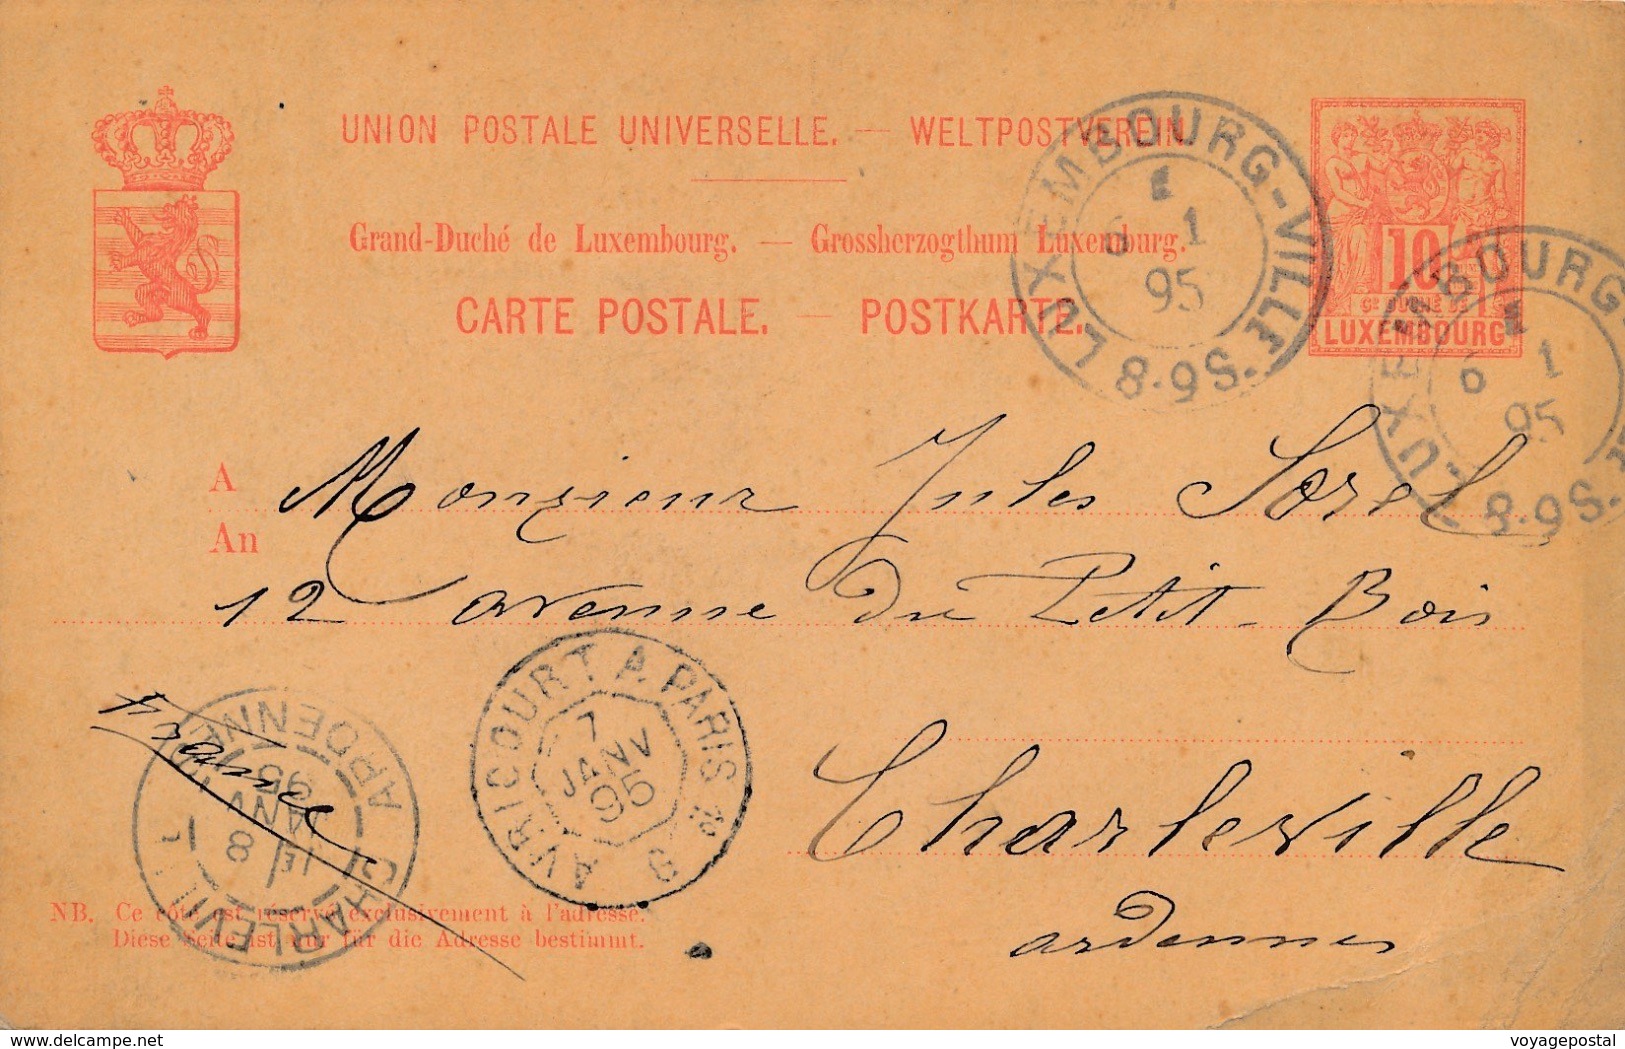 UNION POSTALE UNIVERSELLE. — WELTPOSTVEREIN.
Grand-Duché de Luxembourg. — Grossherzogthum Luxemburg.
CARTE POSTALE. — POSTKARTE.
10
GD DUCHÉ DE
LUXEMBOURG
LUXEMBOURG-VILLE
6 1
95
8-9S.
LUXEMBOURG
6 1
95
8-9S.
A Monsieur Jules Sorel
An
12 avenue du Petit-Bois
France
Charleville
ardennes
AVRICOURT A PARIS 2º
7
JANV
95
CHARLEVILLE
ARDENNES
8
JANV
95
NB. Ce côté est réservé exclusivement à l'adresse.
Diese Seite ist nur für die Adresse bestimmt.
www.delcampe.net
voyagepostal